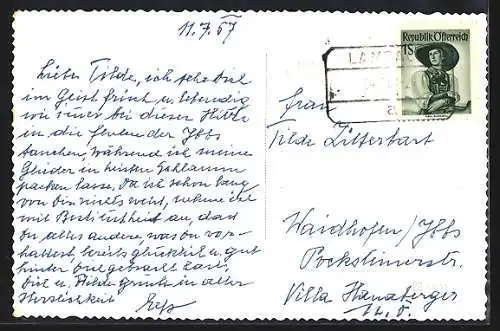 11.7.57
Liebe Tilde, ich sehe Dich
im Geist frisch u. lebendig
wie immer bei dieser Hitze
in die Fluten der Ybbs
tauchen, während ich meine
Glieder in heißen Schlamm
packen lasse. Da ich schon lang
von Dir nichts weiß, nehme ich
mit Bestimmtheit an, dass
Du alles andere, was Du vor-
hattest, bereits glücklich u. gut
hinter Dich gebracht hast.
Dich u. grüßt in alter
Herzlichkeit
Republik Österreich
1S
Frau
Tilde Zitterbart
Waidhofen/Ybbs
Pocksteinerstr.
Villa
N.Ö.